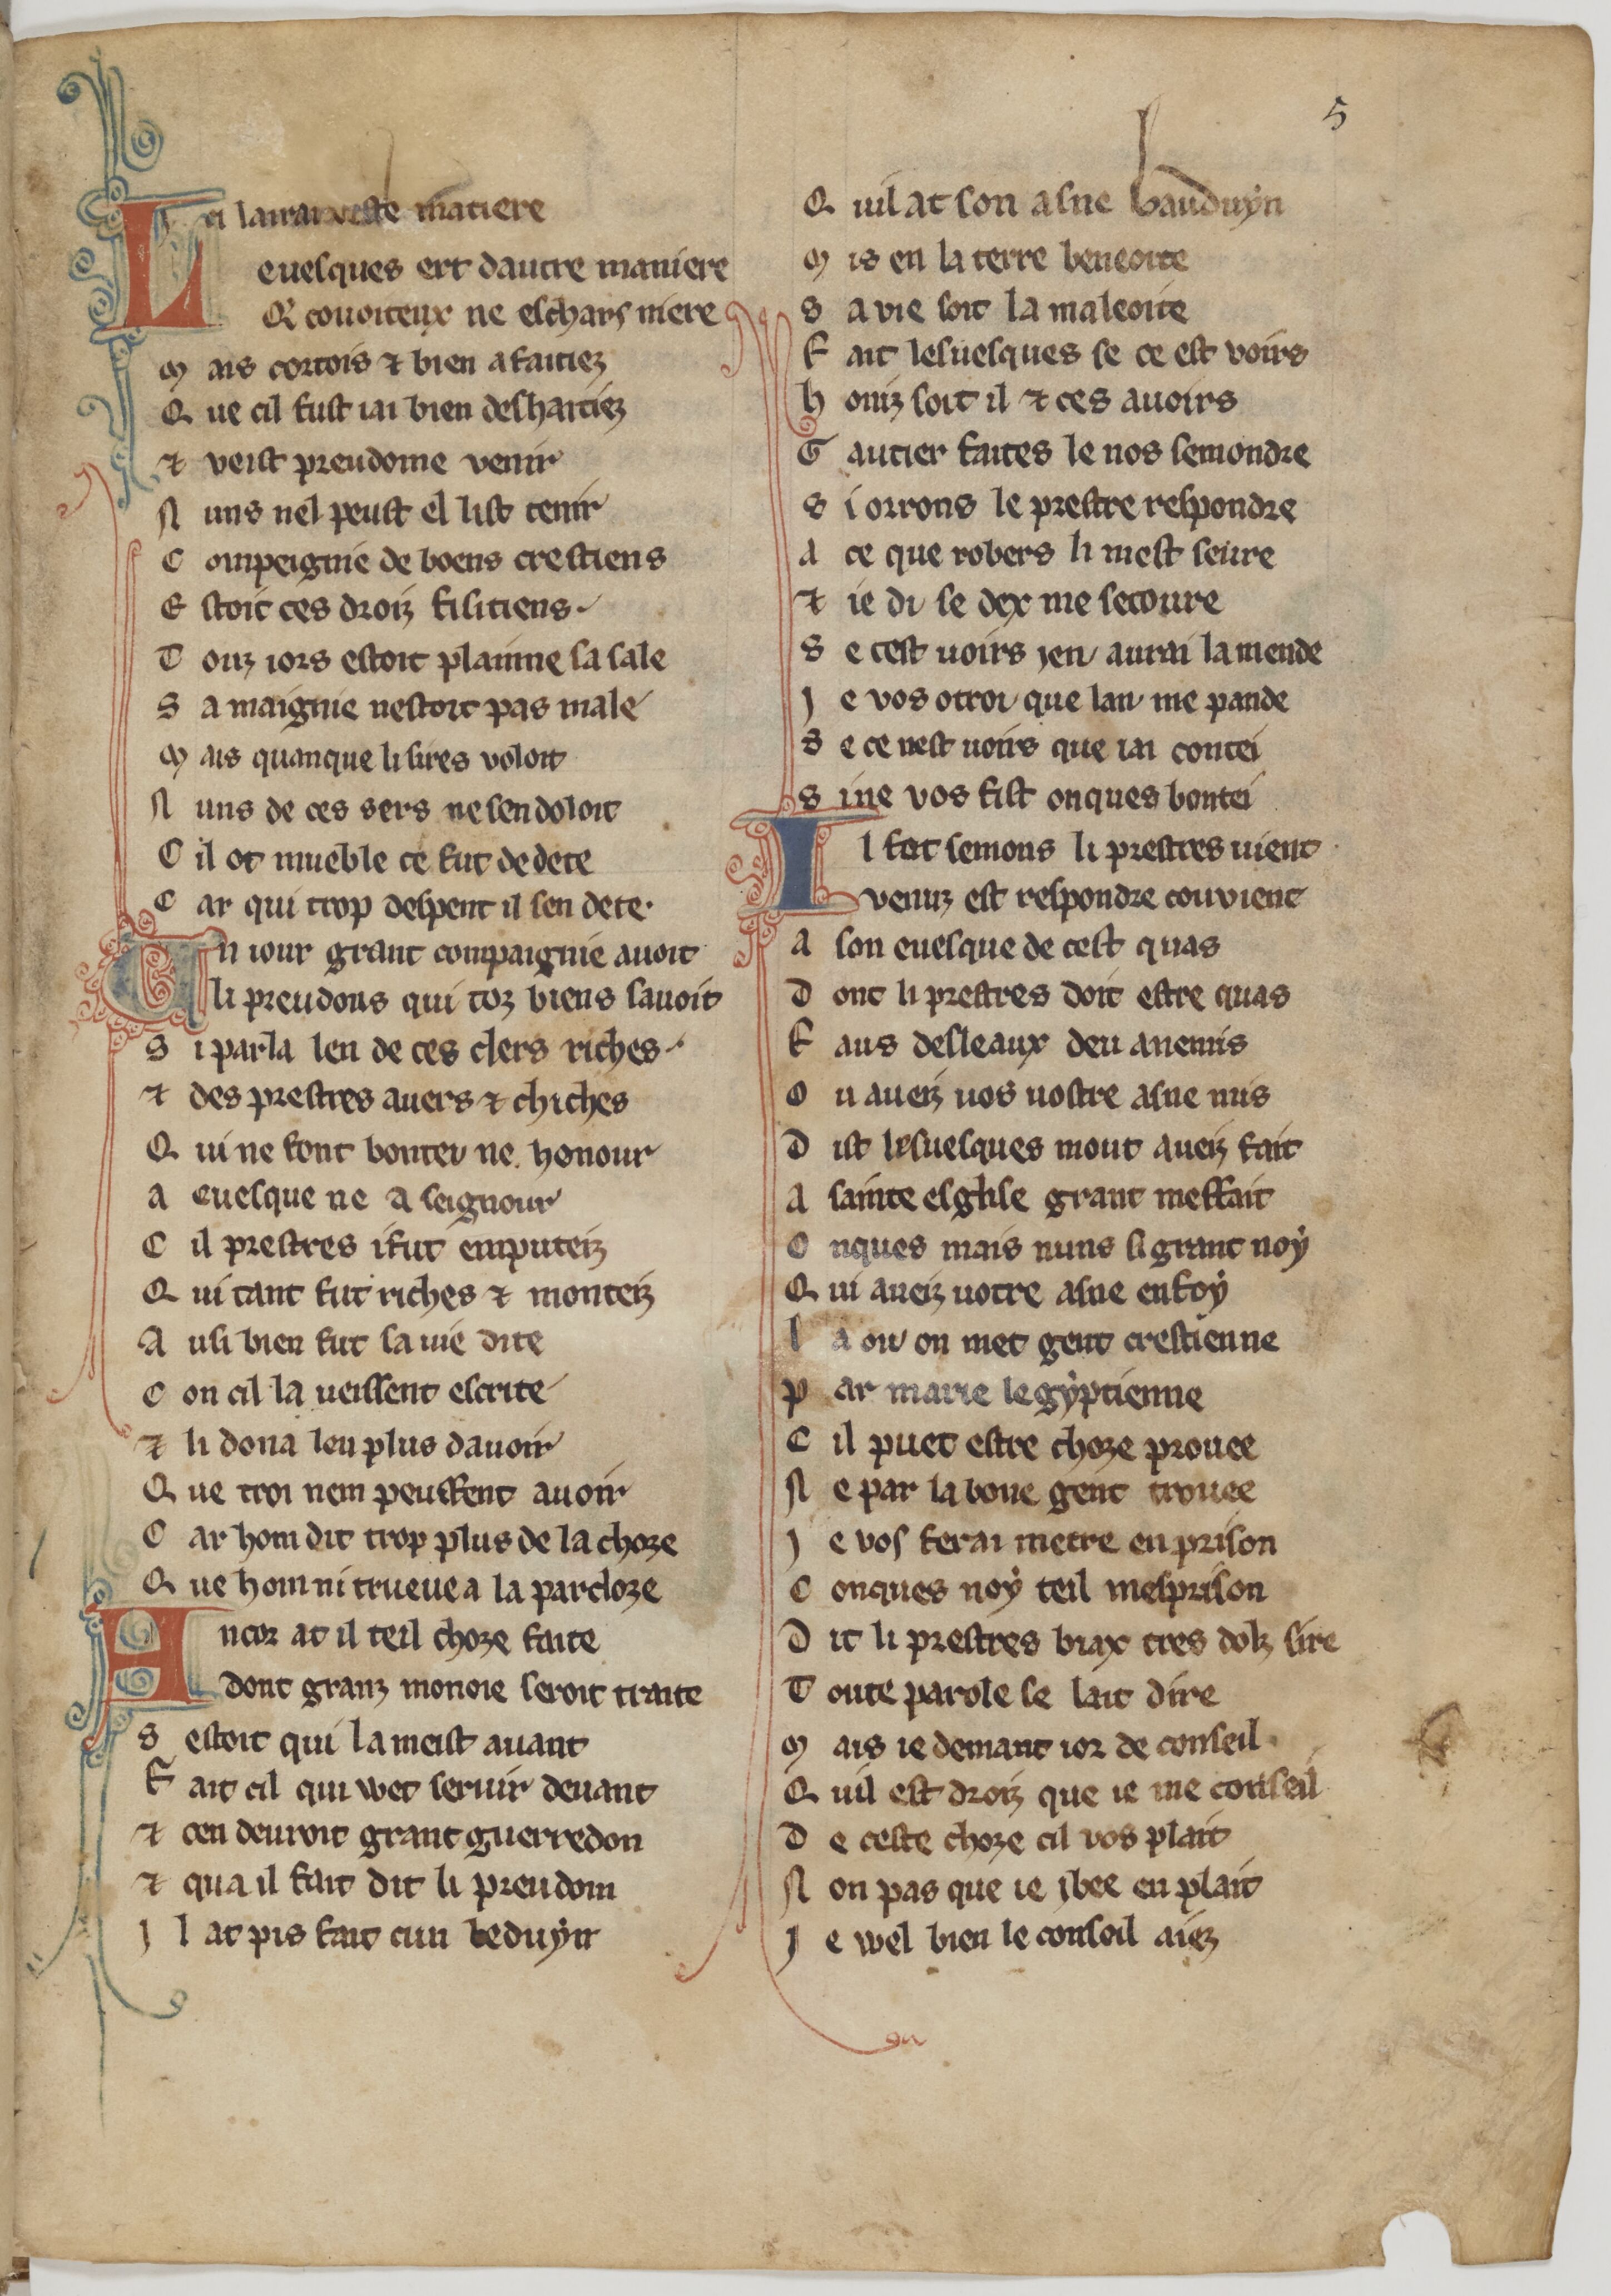 5
ci lairai ceste matiere
Leuesques ert dautre maniere
Q' couoiteux ne eschars niere
Mais cortois ⁊ bien afaitiez
Que cil fust iai bien deshaitiez
⁊ veist preudome venir
Nuns nel peust el list tenir
Compeignie de boens crestiens
Estoit ces droiz fisitiens
Touz iors estoit plainne sa sale
Sa maignie nestoit pas male
Mais quanque li sires voloit
Nuns de ces sers ne sen doloit
Cil ot mueble ce fut de dete
Car qui trop despent il sen dete.
Un iour grant compaignie auoit
li preudons qui toz biens sauoit
Si parla len de ces clers riches
⁊ des prestres auers ⁊ chiches
Qui ne font bontei ne honour
A euesque ne a seignour
Cil prestres i fut emputeiz
Qui tant fut riches ⁊ monteiz
Ausi bien fut sa uie dite
Con cil la ueissent escrite
⁊ li dona len plus dauoir
Que troi nem peussent auoir
Car hom dit trop plus de la choze
Que hom ni trueue a la parcloze
Ancor at il teil choze faite
dont granz monoie seroit traite
Sestoit qui la meist auant
Fait cil qui wet seruir deuant
⁊ cen deuroit grant guerredon
⁊ qua il fait dit li preudom
Il at pis fait cun beduyn
Quil at son asne bauduyn
Mis en la terre beneoite
Sa vie soit la maleoite
Fait lesuesques se ce est voirs
Honiz soit il ⁊ ces auoirs
Gautier faites le nos semondre
Si orrons le prestre respondre
A ce que robers li mest seure
⁊ ie di se dex me secoure
Se cest uoirs jen aurai lamende
Je vos otroi que lan me pande
Se ce nest uoirs que iai contei
Sine vos fist onques bontei
Il fut semons li prestres uient
venuz est respondre couvient
A son euesque de cest quas
Dont li prestres doit estre quas
Faus desleaux deu anemis
Ou aueiz uos uostre asne mis
Dist lesuesques mout aueiz fait
A sainte esglise grant meffait
Onques mais nuns si grant noy
Qui aueiz uotre asne enfoy
La ou on met gent crestienne
Par marie legyptienne
Cil puet estre choze prouee
Ne par la bone gent trouee
Je vos ferai metre en prison
Conques noy teil mesprison
Dit li prestres biax tres dolz sire
Toute parole se lait dire
Mais ie demant ior de conseil
Quil est droiz que ie me conseil
De ceste choze cil vos plait
Non pas que ie ibee en plait
Je wel bien le conseil aiez